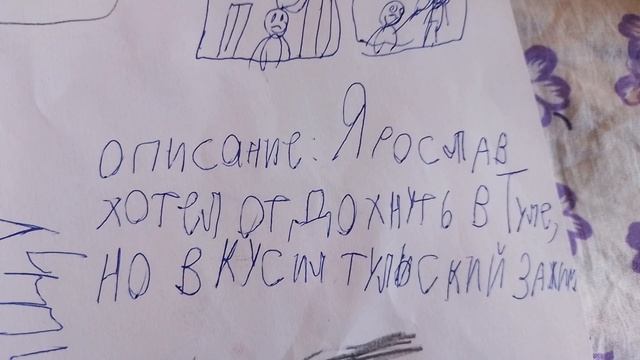 описание: Ярослав
хотел отдохнуть в Туле,
но вкусил тульский